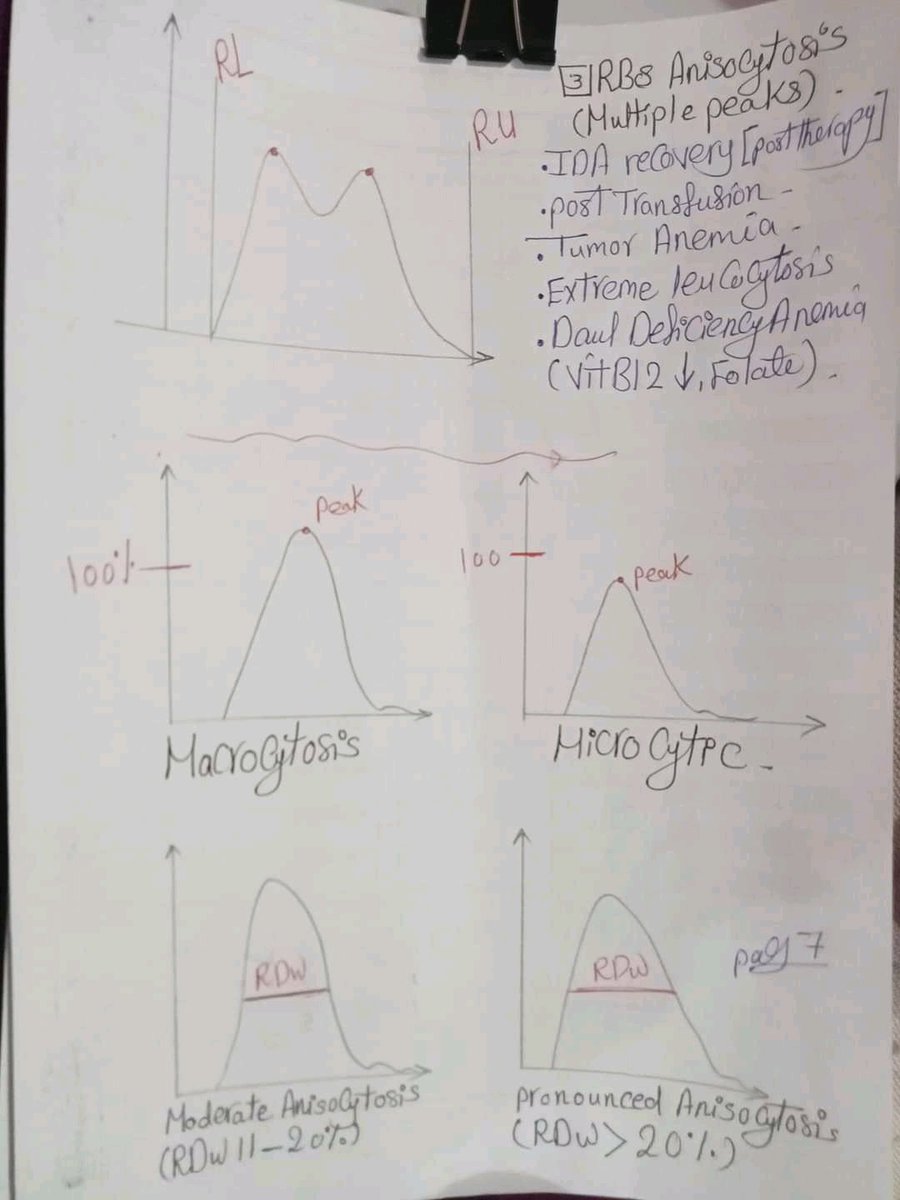 RL
RU
3 RBs Anisocytosis
(Multiple peaks) -
.IDA recovery [post therapy]
.post Transfusion -
.Tumor Anemia -
.Extreme leucocytosis
.Daul Deficiency Anemia
(VitB12 ↓, Folate) -
peak
100%
Macrocytosis
peak
100
Microcytic -
RDW
Moderate Anisocytosis
(RDW 11-20%)
RDW
pronounced Anisocytosis
(RDW > 20%)
pag 7